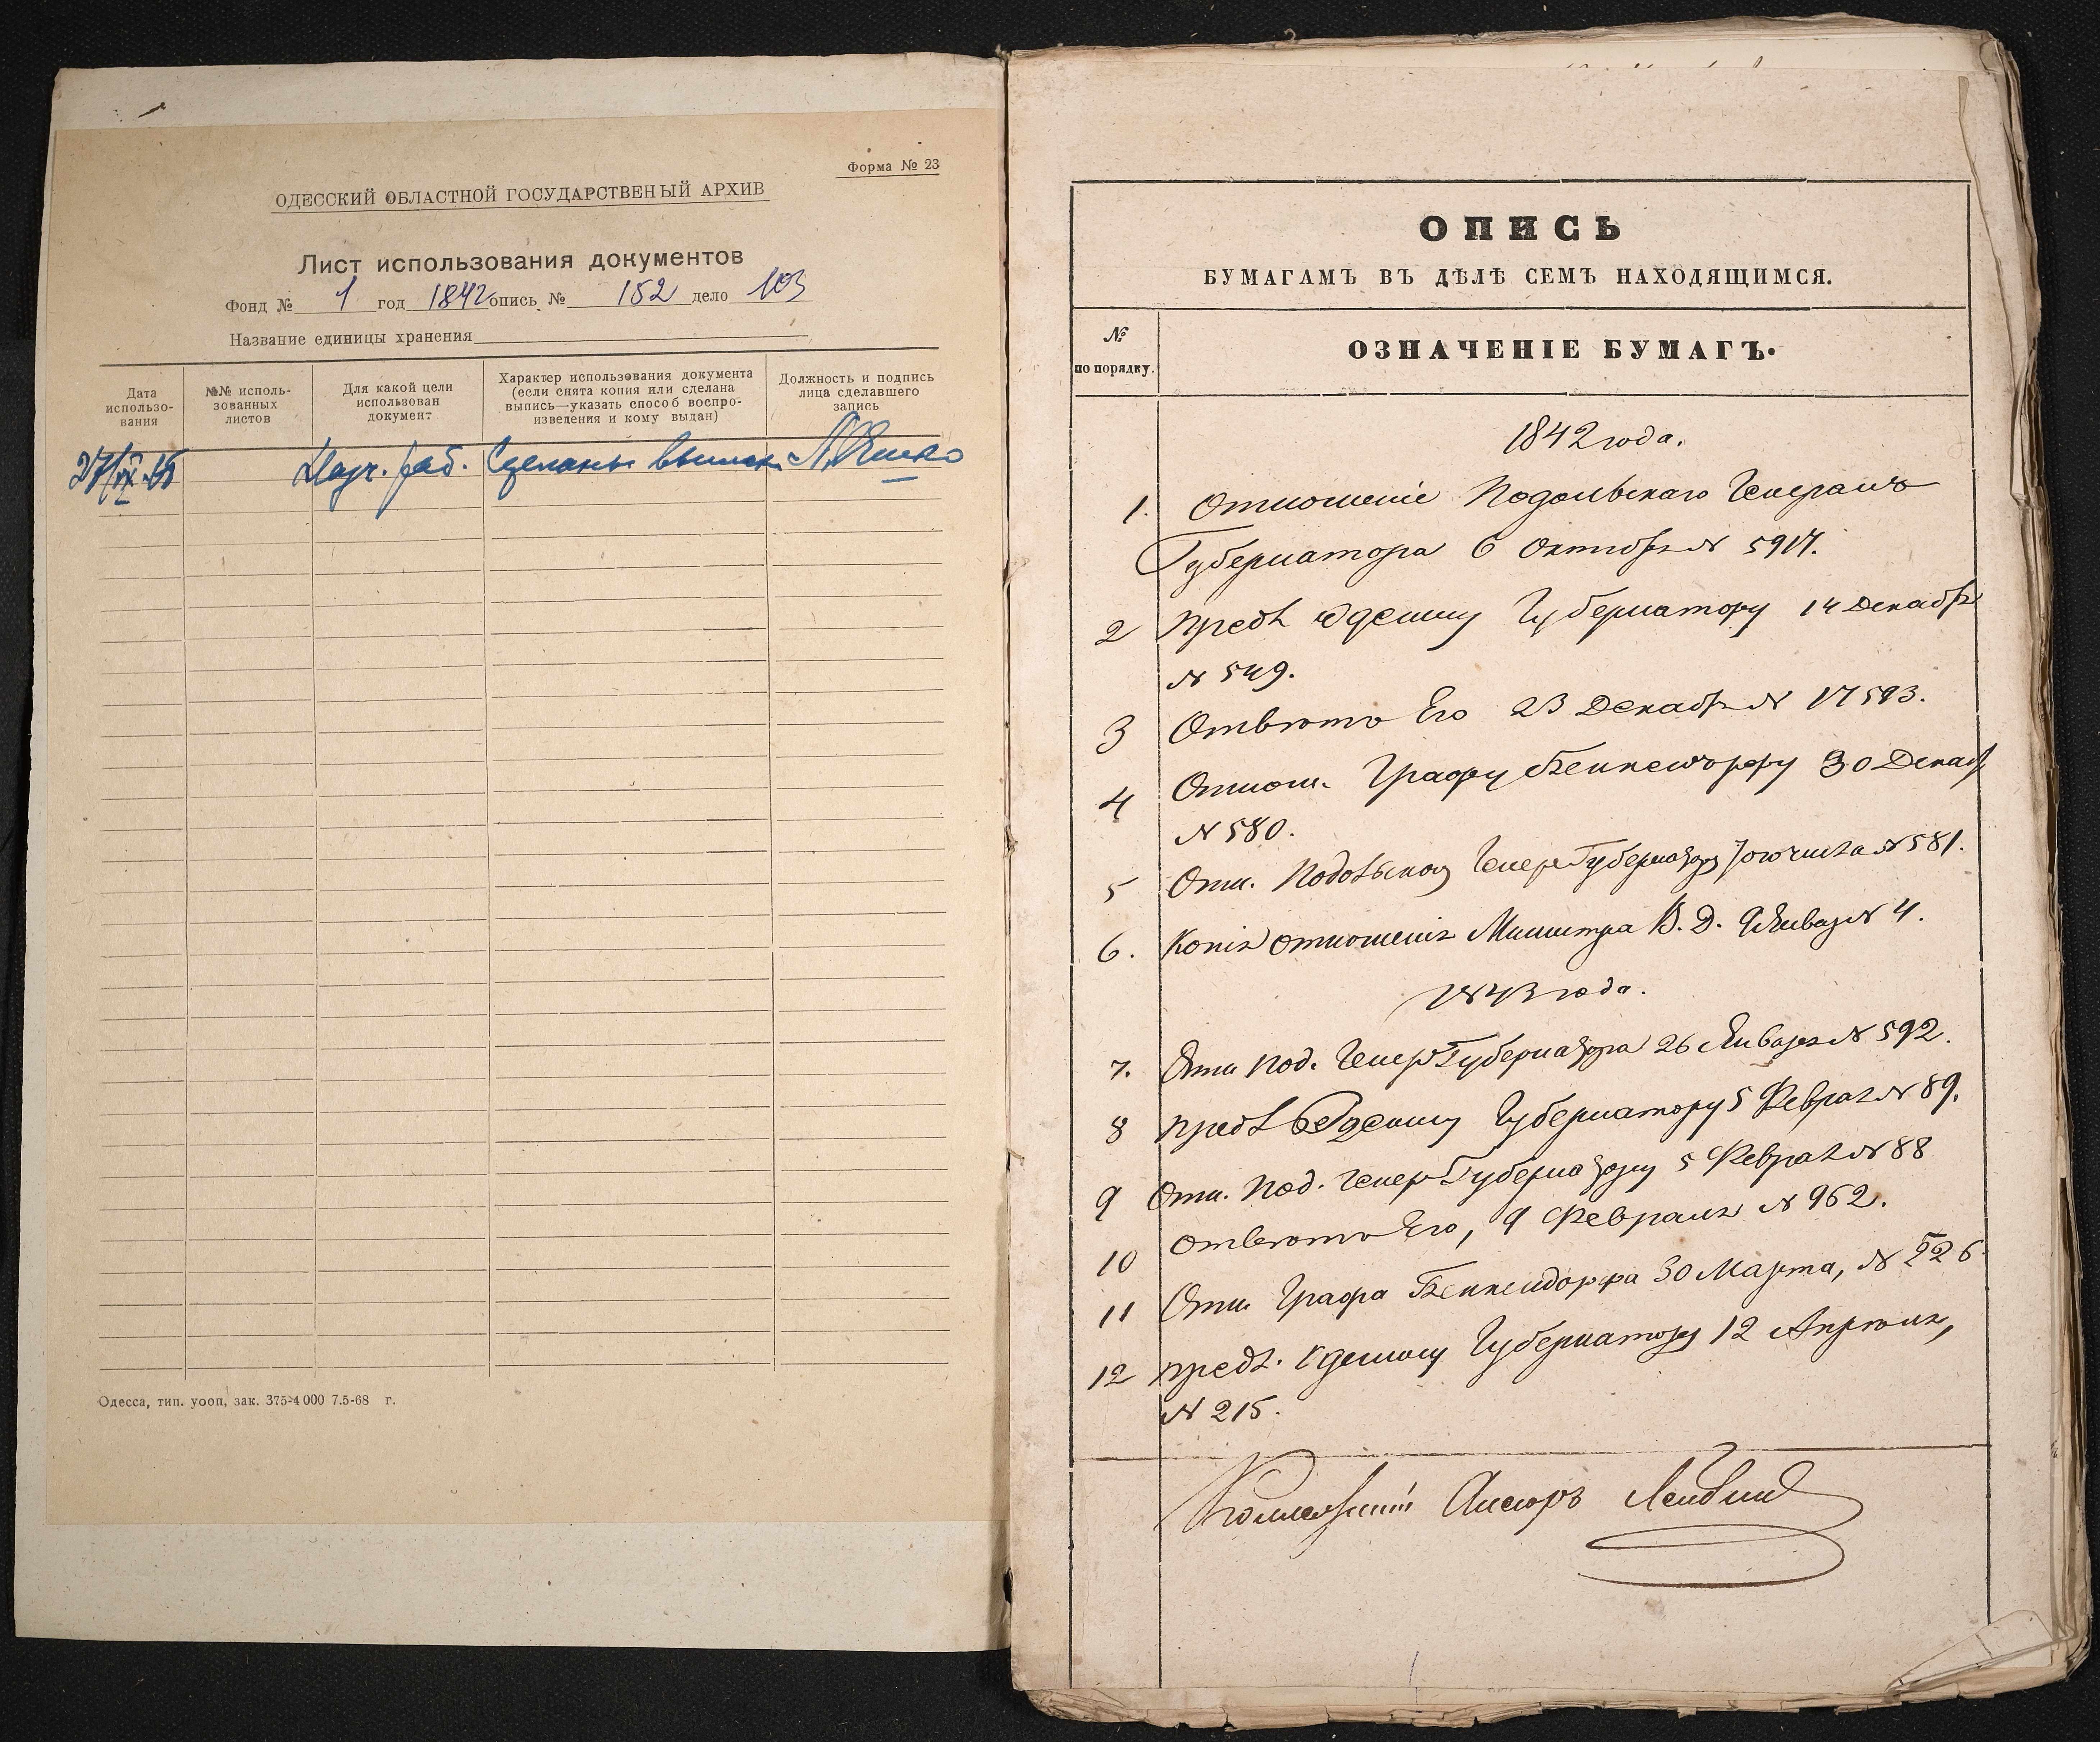 Форма № 23
ОДЕССКИЙ ОБЛАСТНОЙ ГОСУДАРСТВЕНЫЙ АРХИВ
Лист использования документов
Фонд № 1 год 1842 опись № 152 дело 103
Название единицы хранения
Дата использо-вания
№№ исполь-зованных листов
Для какой цели использован документ
Характер использования документа (если снята копия или сделана выпись—указать способ воспро-изведения и кому выдан)
Должность и подпись лица сделавшего запись
Научн. раб. Сделаны выписки
Одесса, тип. уооп, зак. 375-4000 7.5-68 г.
ОПИСЬ
БУМАГАМЪ ВЪ ДѢЛѢ СЕМЪ НАХОДЯЩИМСЯ.
№ по порядку.
ОЗНАЧЕНІЕ БУМАГЪ.
1842 года.
1. Отношеніе Подольскаго Генералъ
Губернатора 6 Октября № 5917.
2 Предл. Одесскому Губернатору 14 Декабр
№ 549.
3 Отвѣтъ Его 23 Декабр № 17593.
4 Отнош. Графу Бенкендорфу 30 Декаб
№ 580.
5 Отн. Подольскому Генер Губернатору того числа № 581.
6. Копія отношенія Министра В. Д. 9 Январ № 4.
1843 года.
7. Отн Под. Генер Губернатора 26 Января № 592.
8 Предл Одесскому Губернатору 5 Феврал № 89.
9 Отн. Под. Генер Губернатору 5 Феврал № 88
10 Отвѣтъ Его, 9 Февраля № 962.
11 Отн Графа Бенкендорфа 30 Марта, № 226
12 Предл. Одесскому Губернатору 12 Апрѣля,
№ 215.
Коллежскій Ассесоръ